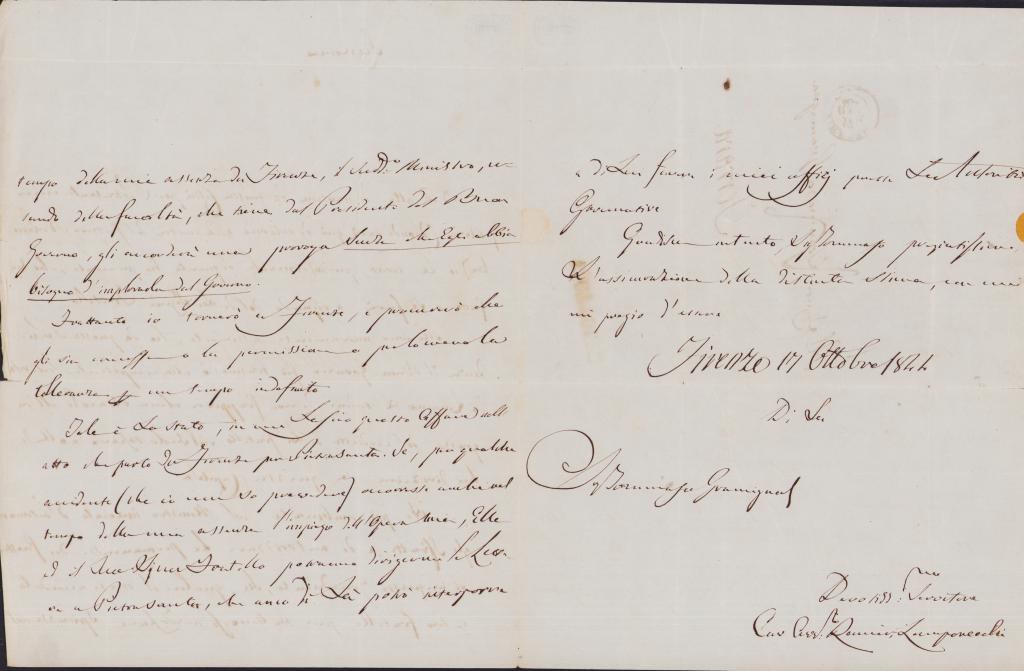 tempo della mia assenza da Firenze, il Sudd.o Ministro, u-
sando della facoltà, che tiene dal Presidente del Buon
Governo, gli accorderà una proroga senza che Egli abbia
bisogno d'implorarla dal Governo.
Frattanto io tornerò a Firenze, e procurerò che
gli sia concessa o la permissione o per lo meno la
tolleranza per un tempo indefinito
Tale è lo stato, in cui lascio questo affare nell'
atto che parto da Firenze per Pietrasanta. Se, per qualche
accidente (che io non so prevedere) occorresse anche nel
tempo della mia assenza l'impiego dell'Opera mia, Ella
ed il Fratello potranno dirigermi le Lette-
re a Pietrasanta, che anco di Là potrò interporre
e di Lui favore i miei uffizj presso Le Autorità
Governative
Gradisca intanto, Sig. Tommaso pregiatissimo
L'assicurazione della distinta stima, con cui
mi pregio d'essere
Firenze 17 Ottobre 1844
Di Lei
Sig. Tommaso Gramignal
Devotiss.mo Servitore
Cav Avv. Ranieri Lamporecchi